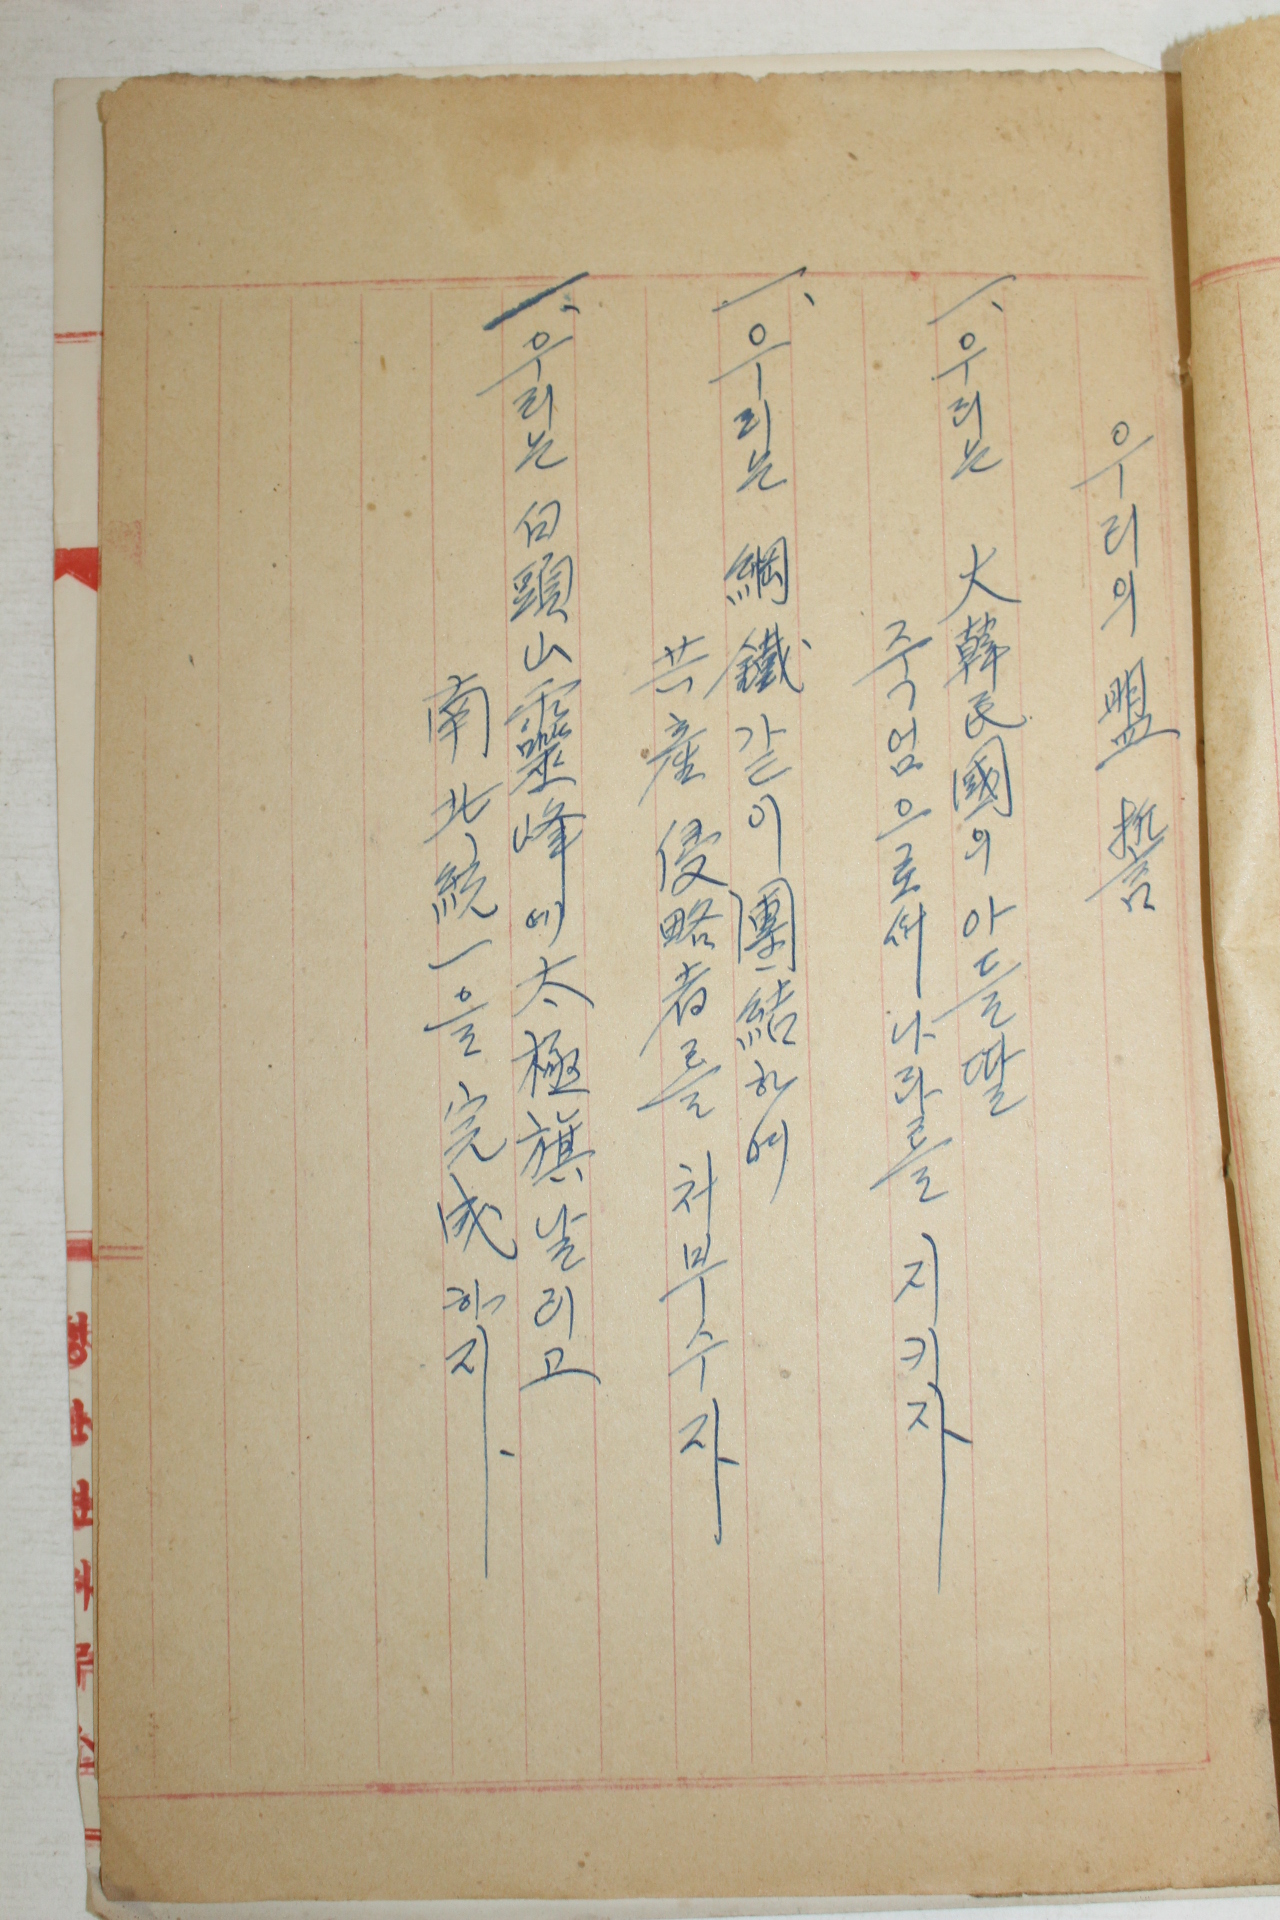 우리의 盟誓
一、우리는 大韓民國의 아들딸
죽엄으로써 나라를 지키자
一、우리는 綱鐵같이 團結하여
共產侵略者를 처부수자
一、우리는 白頭山靈峰에 太極旗 날리고
南北統一을 完成하자.